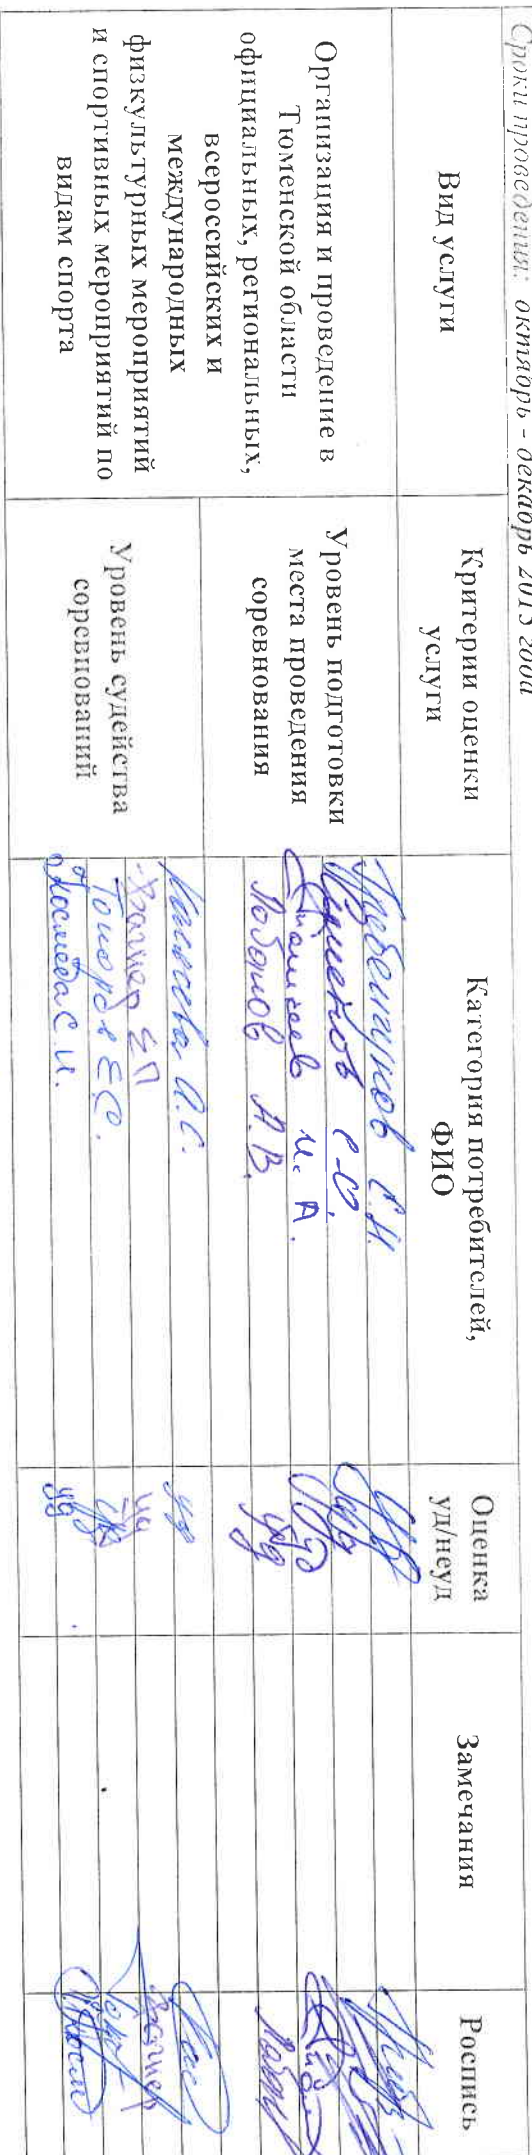 Сроки проведения: октябрь - декабрь 2015 года
Вид услуги
Критерии оценки
услуги
Категория потребителей,
ФИО
Оценка
уд/неуд
Замечания
Роспись
Организация и проведение в
Тюменской области
официальных, региональных,
всероссийских и
международных
физкультурных мероприятий
и спортивных мероприятий по
видам спорта
Уровень подготовки
места проведения
соревнования
С.Н.
уд
С.Ю.
уд
И.А.
уд
Лобанов А.В.
уд
Уровень судейства
соревнований
А.С.
уд
Вагнер Е.П
уд
Е.С.
уд
Космеда С.И.
уд